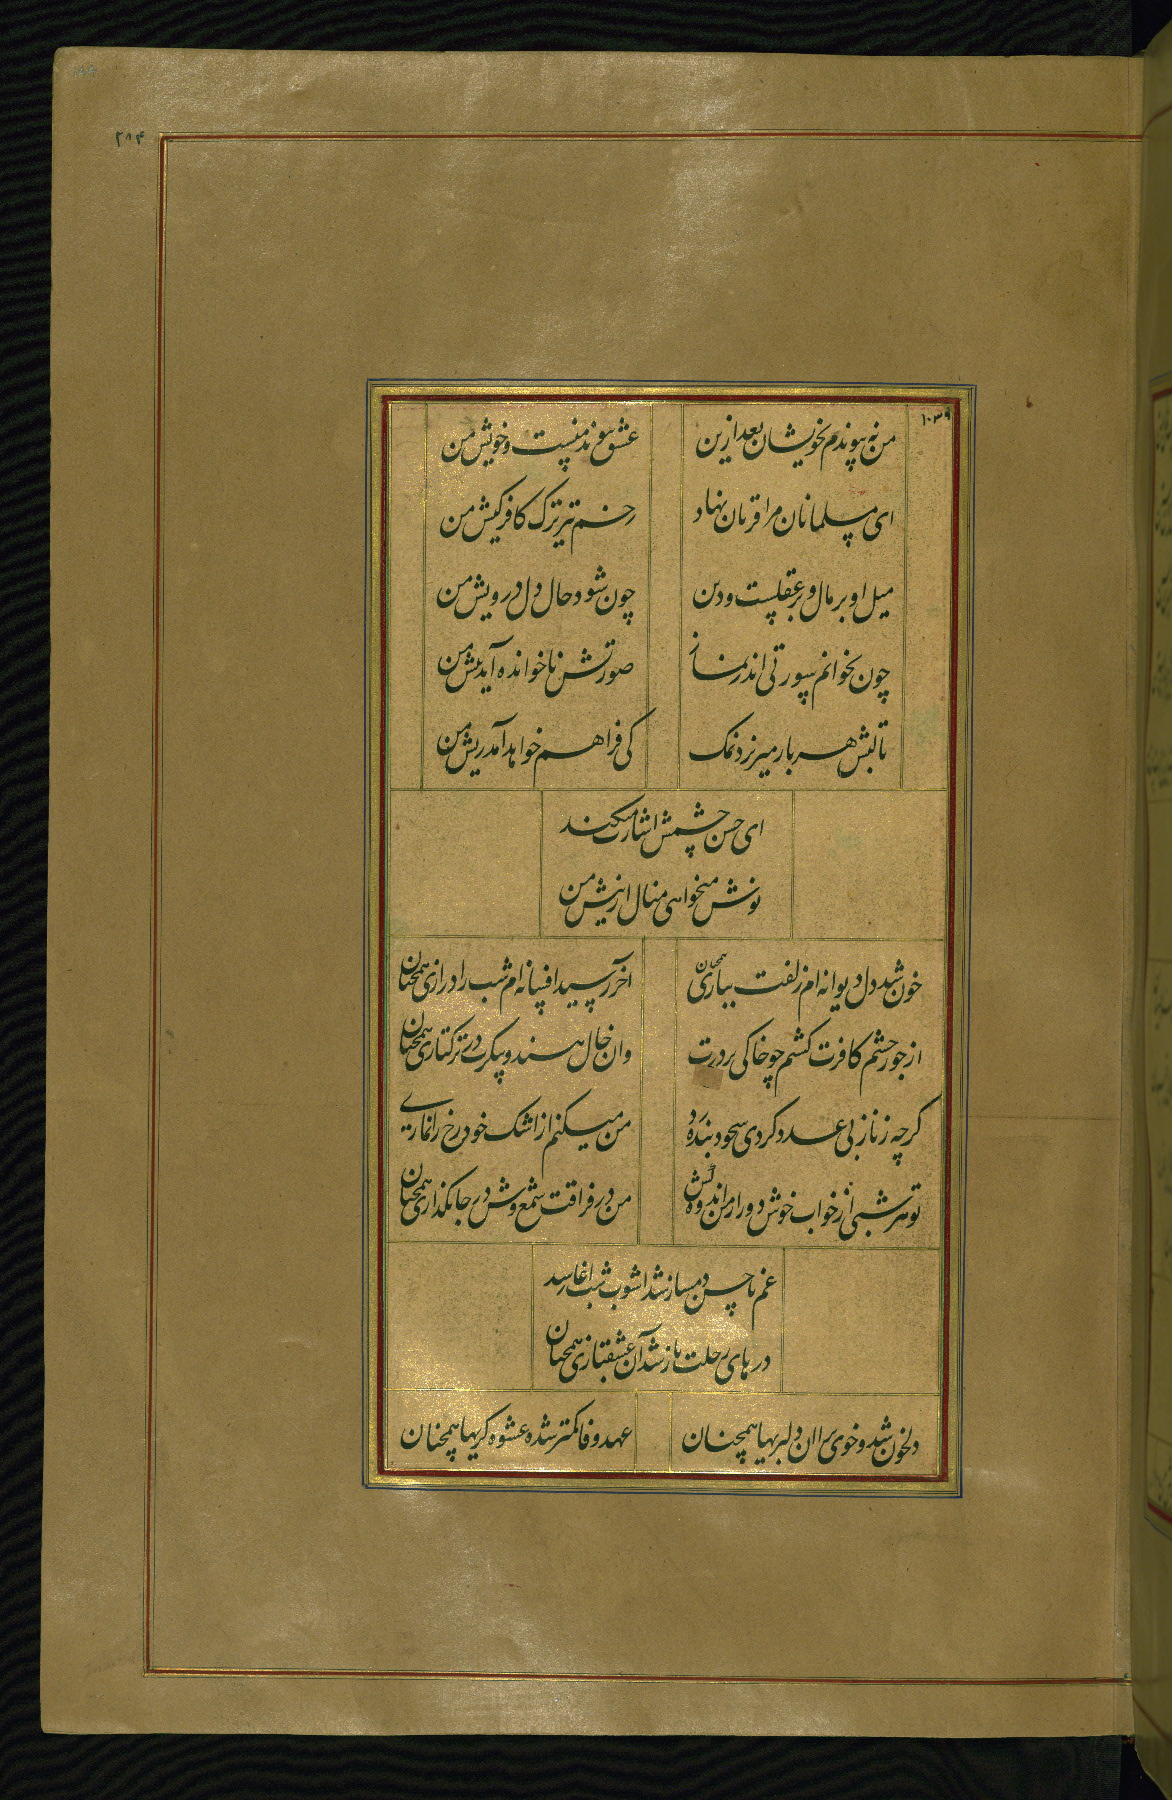 ۲۸۴
۱۰۳۹
من نه پیوندم بخویشان بعد ازین
عشق پیوند منست و خویش من
ای مسلمانان مرا قربان نهاد
زخم تیر ترک کافر کیش من
میل او بر مال و بر عقلست و دین
چون شود حال دل درویش من
چون بخوانم سورتی اندر نماز
صورتش ناخوانده آید پیش من
تا لبش هر بار میریزد نمک
کی فراهم خواهد آمد ریش من
ای حسن چشمش اشارت میکند
نوش میخواهی منال از نیش من
خون شد دل دیوانه ام زلفت ببازی همچنان
آخر رسید افسانه ام شب را درازی همچنان
از جور چشم کافرت کشتم چو خاکی بر درت
وان خال هندو پیکرت در ترکتازی همچنان
کر چه زناز بی عدد کردی سجود بنده رد
من میکنم از اشک خود رخ را نمازی
تو هر شبی از خواب خوش دور از من اندوه کش
من در فراقت شمع وش در جانکدازی همچنان
غم با حسن دمساز شد آشوب شب آغاز شد
درهای رحلت باز شد آن عشقبازی همچنان
دلخون شد و خوی ترا آن دلبریها همچنان
عهد وفا کمتر شده عشوه کریها همچنان